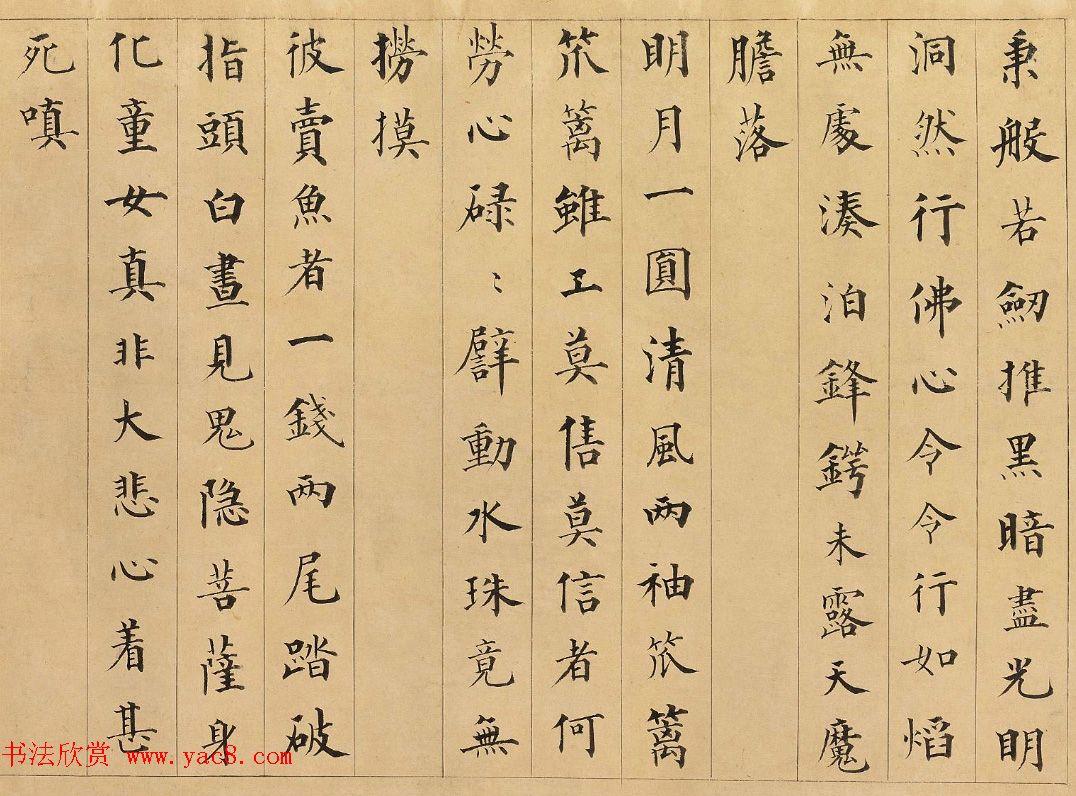 秉般若劒推黑暗盡光明
洞然行佛心令令行如熖
無處湊泊鋒鍔未露天魔
膽落
明月一圓清風兩袖笊篱
笊篱雖工莫售莫信者何
勞心碌〻劈動水珠竟無
撈摸
彼賣魚者一錢兩尾踏破
指頭白晝見鬼隐菩薩身
化童女真非大悲心着甚
死嗔
书法欣赏 www.yac8.com